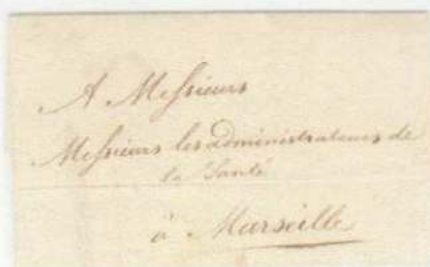 A Messieurs
Messieurs les administrateurs de
la Santé
à Marseille